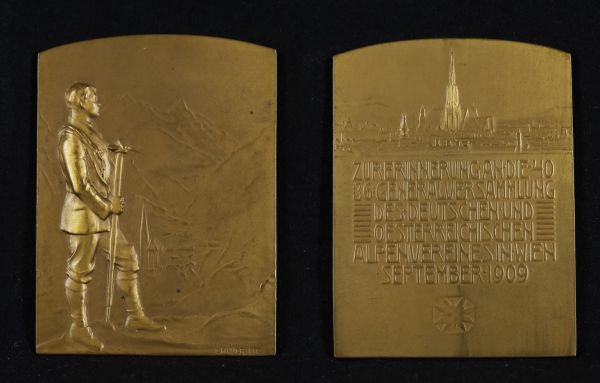 ZUR ERINNERUNG AN DIE 40
GENERALVERSAMMLUNG
DES DEUTSCHEN UND
OESTERREICHISCHEN
ALPENVEREINES IN WIEN
SEPTEMBER·1909